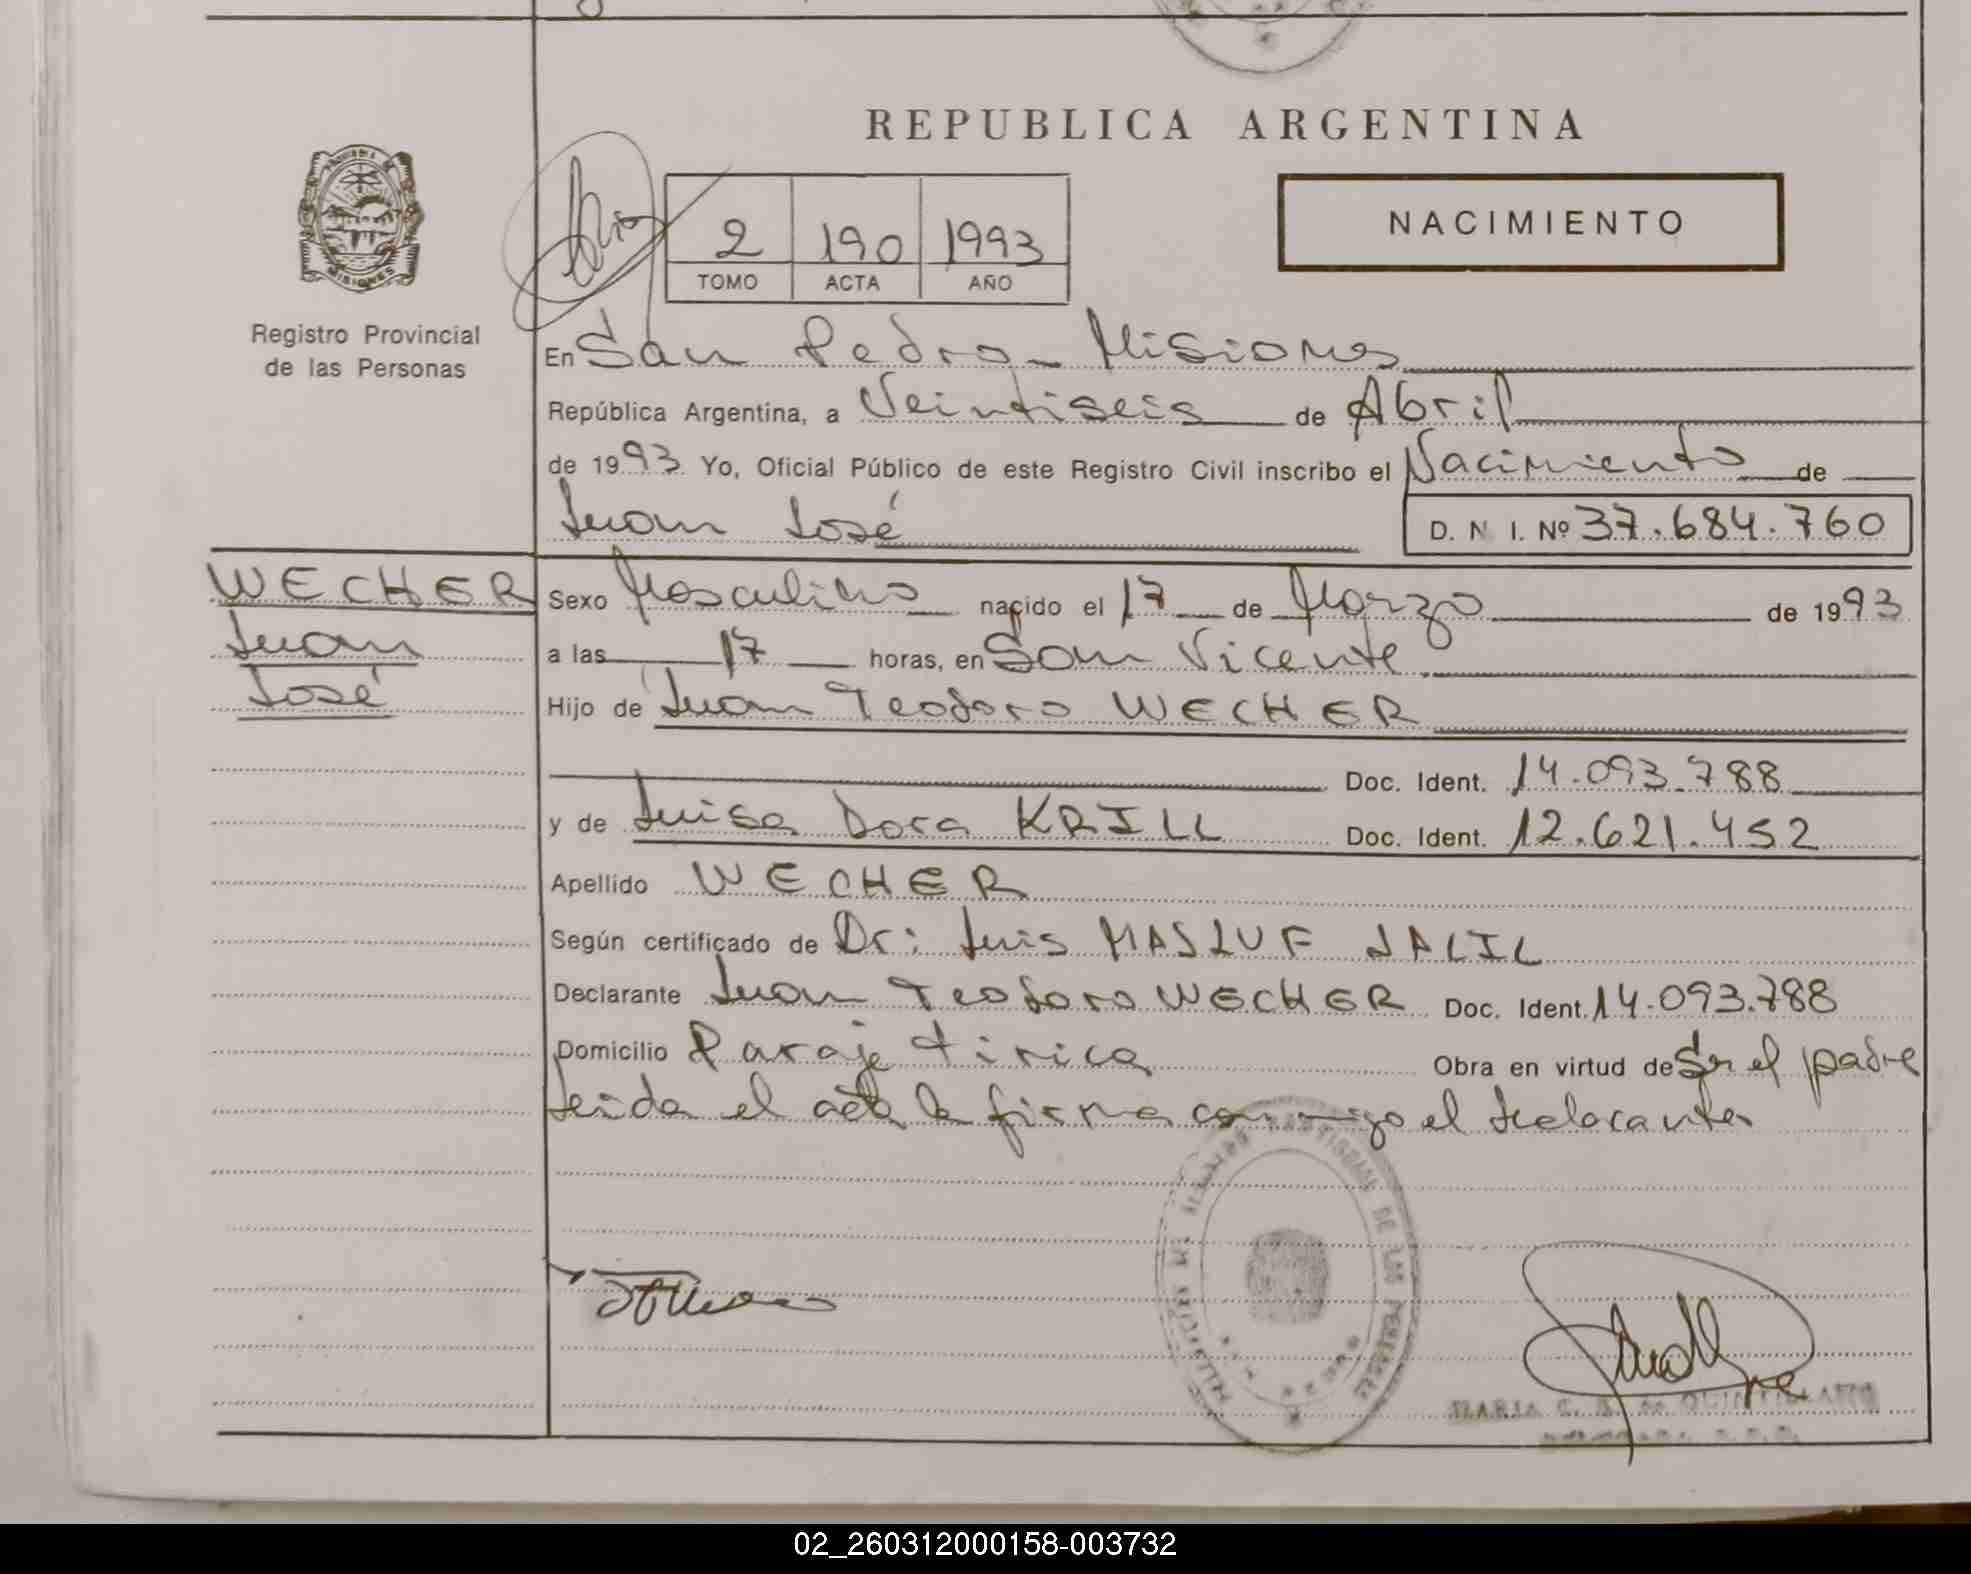 REPUBLICA ARGENTINA
NACIMIENTO
2 190 1993
TOMO ACTA AÑO
MISIONES
Registro Provincial
de las Personas
En San Pedro - Misiones
República Argentina, a Veintiseis de Abril
de 1993 Yo, Oficial Público de este Registro Civil inscribo el Nacimiento de
Juan José
D. N. I. Nº 37.684.760
WECHER
Juan
José
Sexo Masculino nacido el 17 de Marzo de 1993
a las 17 horas, en San Vicente
Hijo de Juan Teodoro WECHER
Doc. Ident. 14.093.788
y de Luisa Dora KRILL Doc. Ident. 12.621.452
Apellido WECHER
Según certificado de Dr: Luis MASLUF JALIL
Declarante Juan Teodoro WECHER Doc. Ident. 14.093.788
Domicilio Paraje tirica Obra en virtud de Ser el padre
leida el acta la firma conmigo el declarante
DE LAS PERSONAS
MARIA C. de
02_260312000158-003732